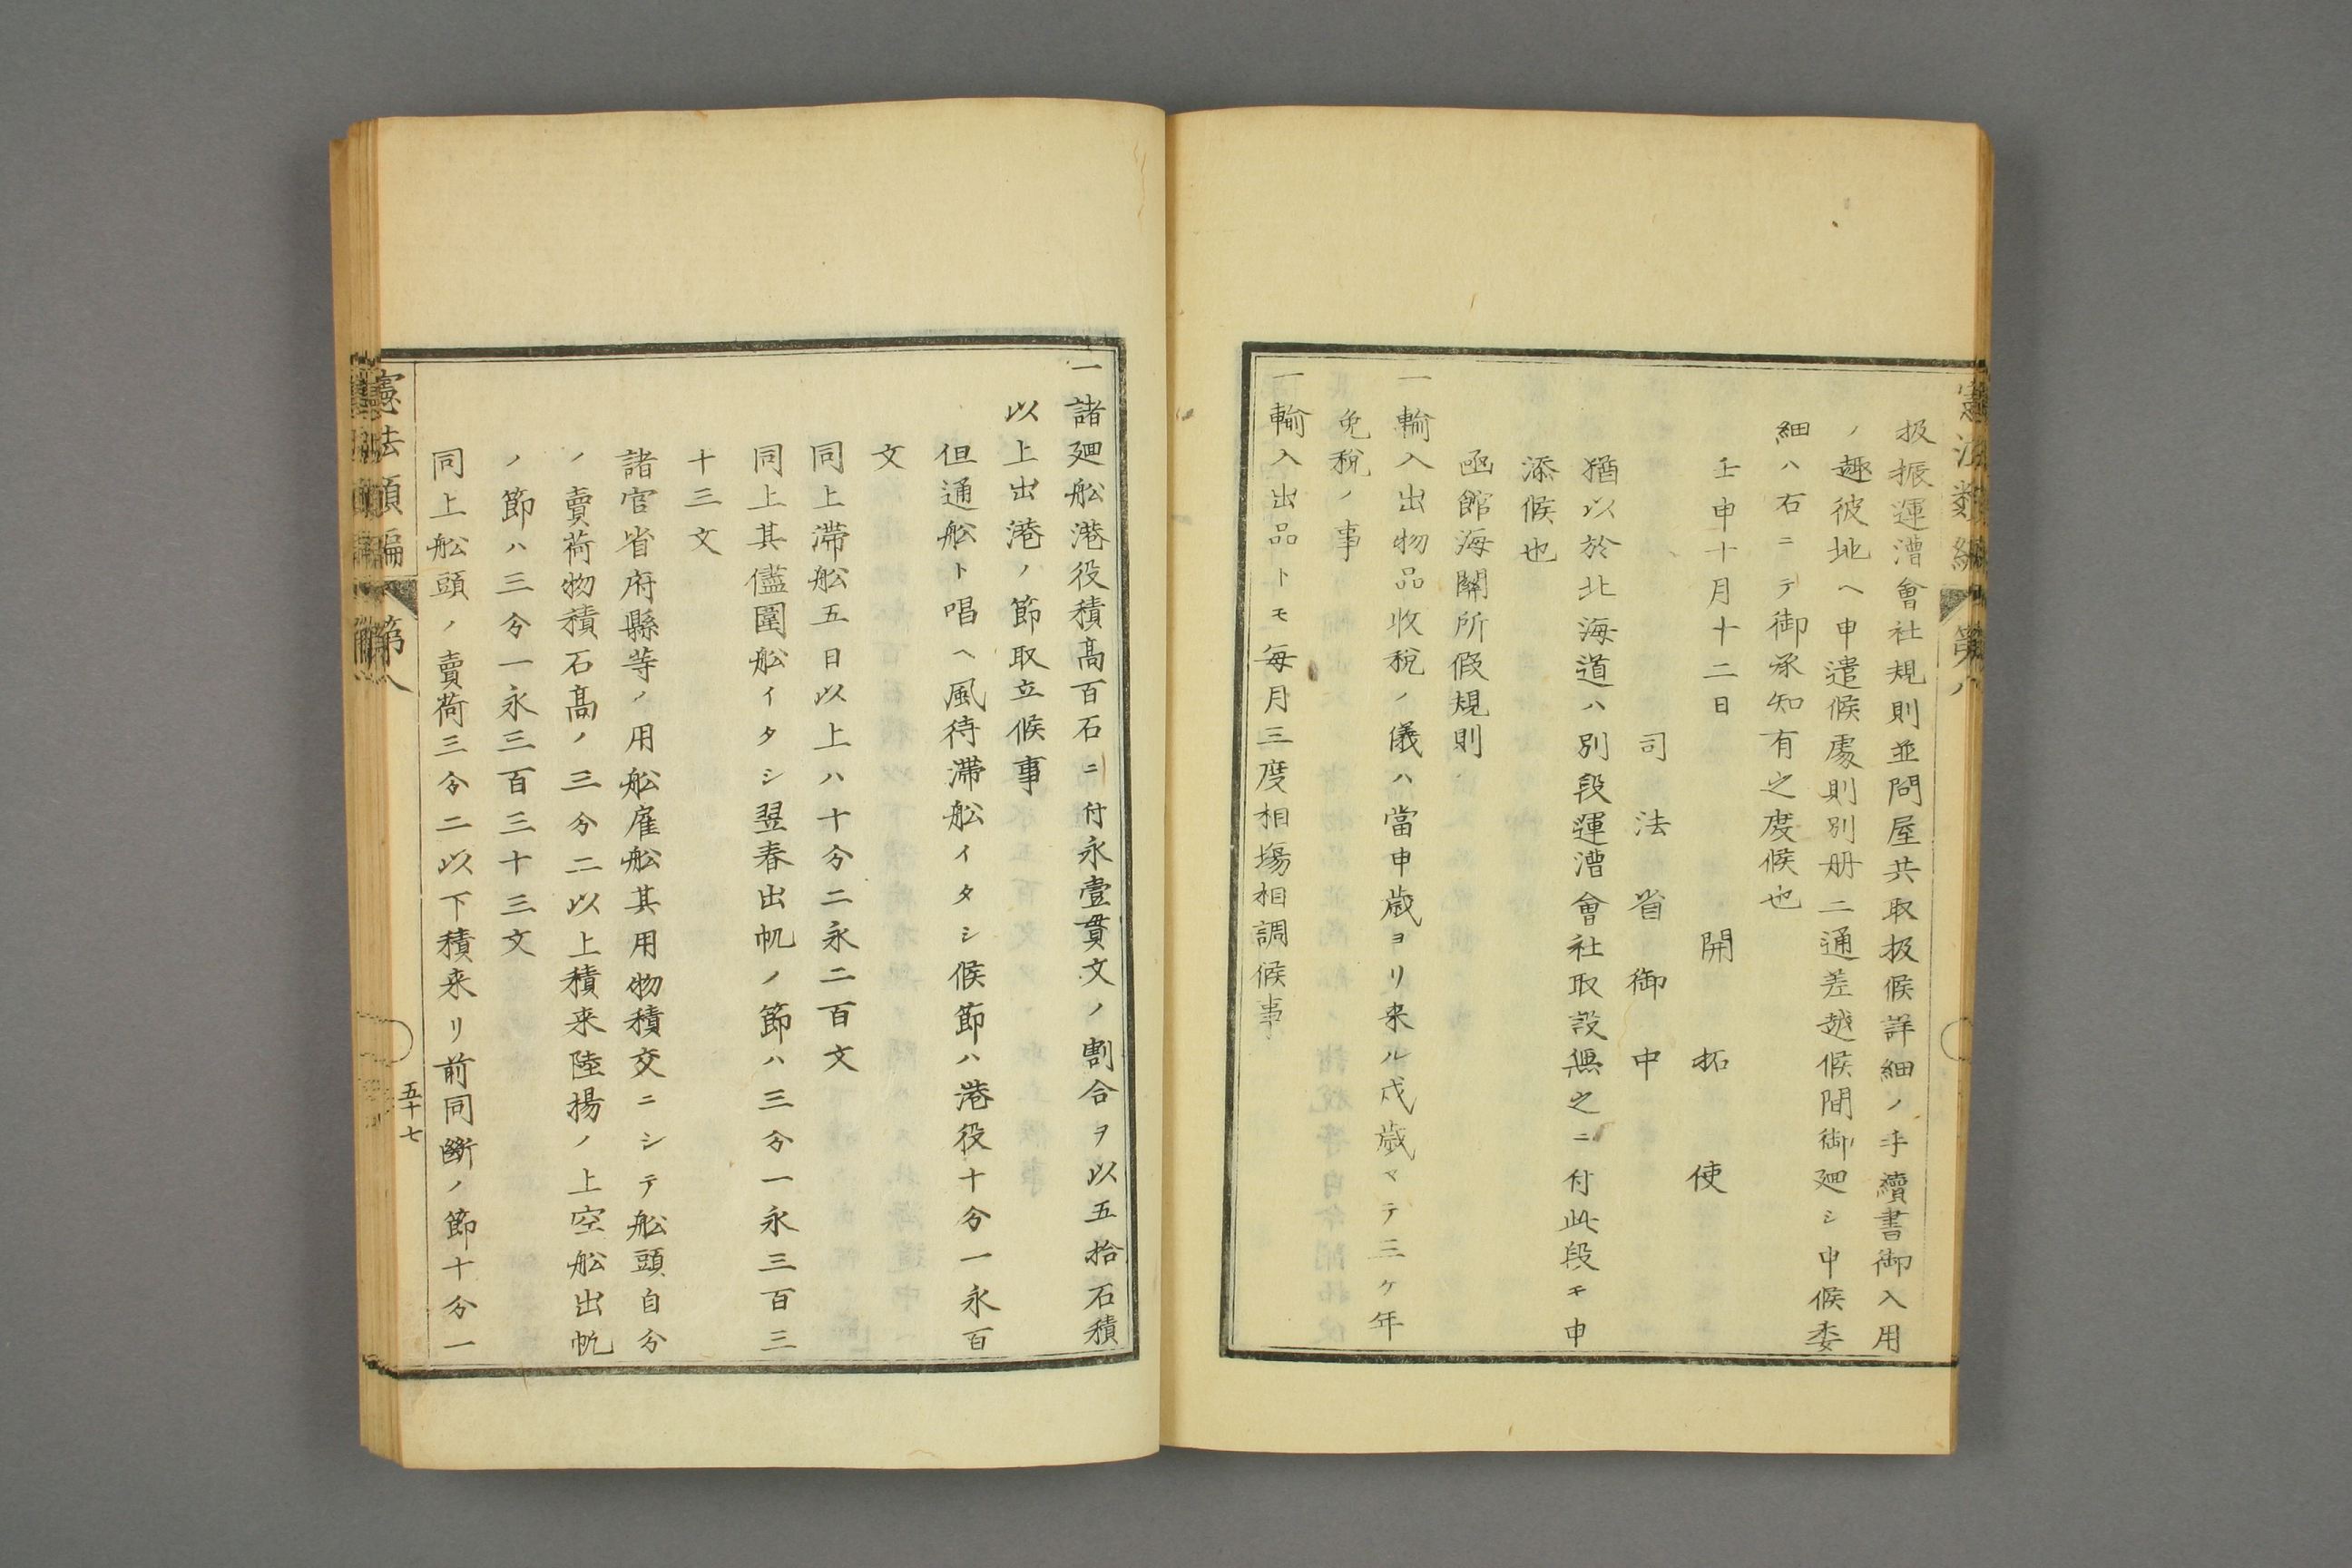 憲法類編 第八
扱振運漕會社規則並問屋共取扱候詳細ノ手續書御入用
ノ趣彼地ヘ申遣候處則別册二通差越候間御廻シ申候委
細ハ右ニテ御承知有之度候也
壬申十月十二日
開拓使
司法省御中
猶以於北海道ハ別段運漕會社取設無之ニ付此段モ申
添候也
凾館海關所假規則
一輸入出物品收税ノ儀ハ當申歳ヨリ来ル戌歳マテ三ケ年
免税ノ事
一輸入出品トモ毎月三度相塲相調候事
一諸廻舩港役積高百石ニ付永壹貫文ノ割合ヲ以五拾石積
以上出港ノ節取立候事
但通舩ト唱ヘ風待滞舩イタシ候節ハ港役十分一永百
文
同上滞舩五日以上ハ十分二永二百文
同上其儘圍舩イタシ翌春出帆ノ節ハ三分一永三百三
十三文
諸官省府縣等ノ用舩雇舩其用物積交ニシテ舩頭自分
ノ賣荷物積石高ノ三分二以上積来陸揚ノ上空舩出帆
ノ節ハ三分一永三百三十三文
同上舩頭ノ賣荷三分二以下積来リ前同斷ノ節十分一
憲法類編 第八
五十七